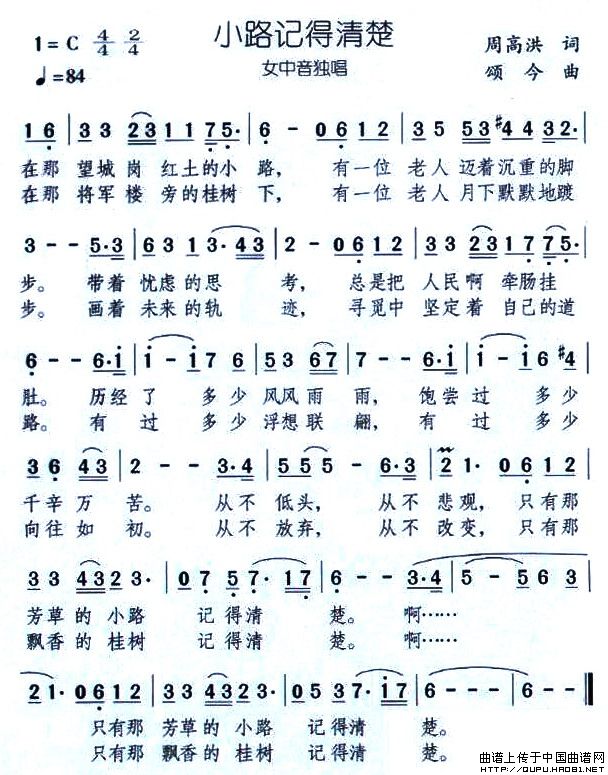 小路记得清楚
1=C 4/4 2/4
周高洪 词
♩=84
女中音独唱
颂今 曲
1 6 | 3 3 2 3 1 1 7 5· | 6 - 0 6 1 2 | 3 5 5 3 #4 4 3 2· |
在那 望城 岗 红土的小 路, 有一位 老人 迈着沉重的脚
在那 将军 楼 旁的桂树 下, 有一位 老人 月下默默地踱
3 - - 5·3 | 6 3 1 3· 4 3 | 2 - 0 6 1 2 | 3 3 2 3 1 7 7 5· |
步。 带着 忧虑的思 考, 总是把 人民啊 牵肠挂
步。 画着 未来的轨 迹, 寻觅中 坚定着 自己的道
6 - - 6·i | i - i 7 6 | 3 5 3 6 7 | 7 - - 6·i | i - i 6 #4 |
肚。 历经了 多少 风风雨 雨, 饱尝过 多少
路。 有过 多少 浮想联 翩, 有过 多少
3 6 4 3 | 2 - - 3·4 | 5 5 5 - 6·3 | 2 1· 0 6 1 2 |
千辛万 苦。 从不 低头, 从不 悲观, 只有那
向往如 初。 从不 放弃, 从不 改变, 只有那
3 3 4 3 2 2 3· | 0 7 5 7· 1 7 | 6 - - 3·4 | 5 - 5 6 3 |
芳草的 小路 记得清 楚。 啊……
飘香的 桂树 记得清 楚。 啊……
2 1· 0 6 1 2 | 3 3 4 3 2 2 3· | 0 5 3 7· i 7 | 6 - - - | 6 - - - ‖
只有那 芳草的 小路 记得清 楚。
只有那 飘香的 桂树 记得清 楚。
曲谱上传于中国曲谱网
HTTP://QUPU.HAO81.NET